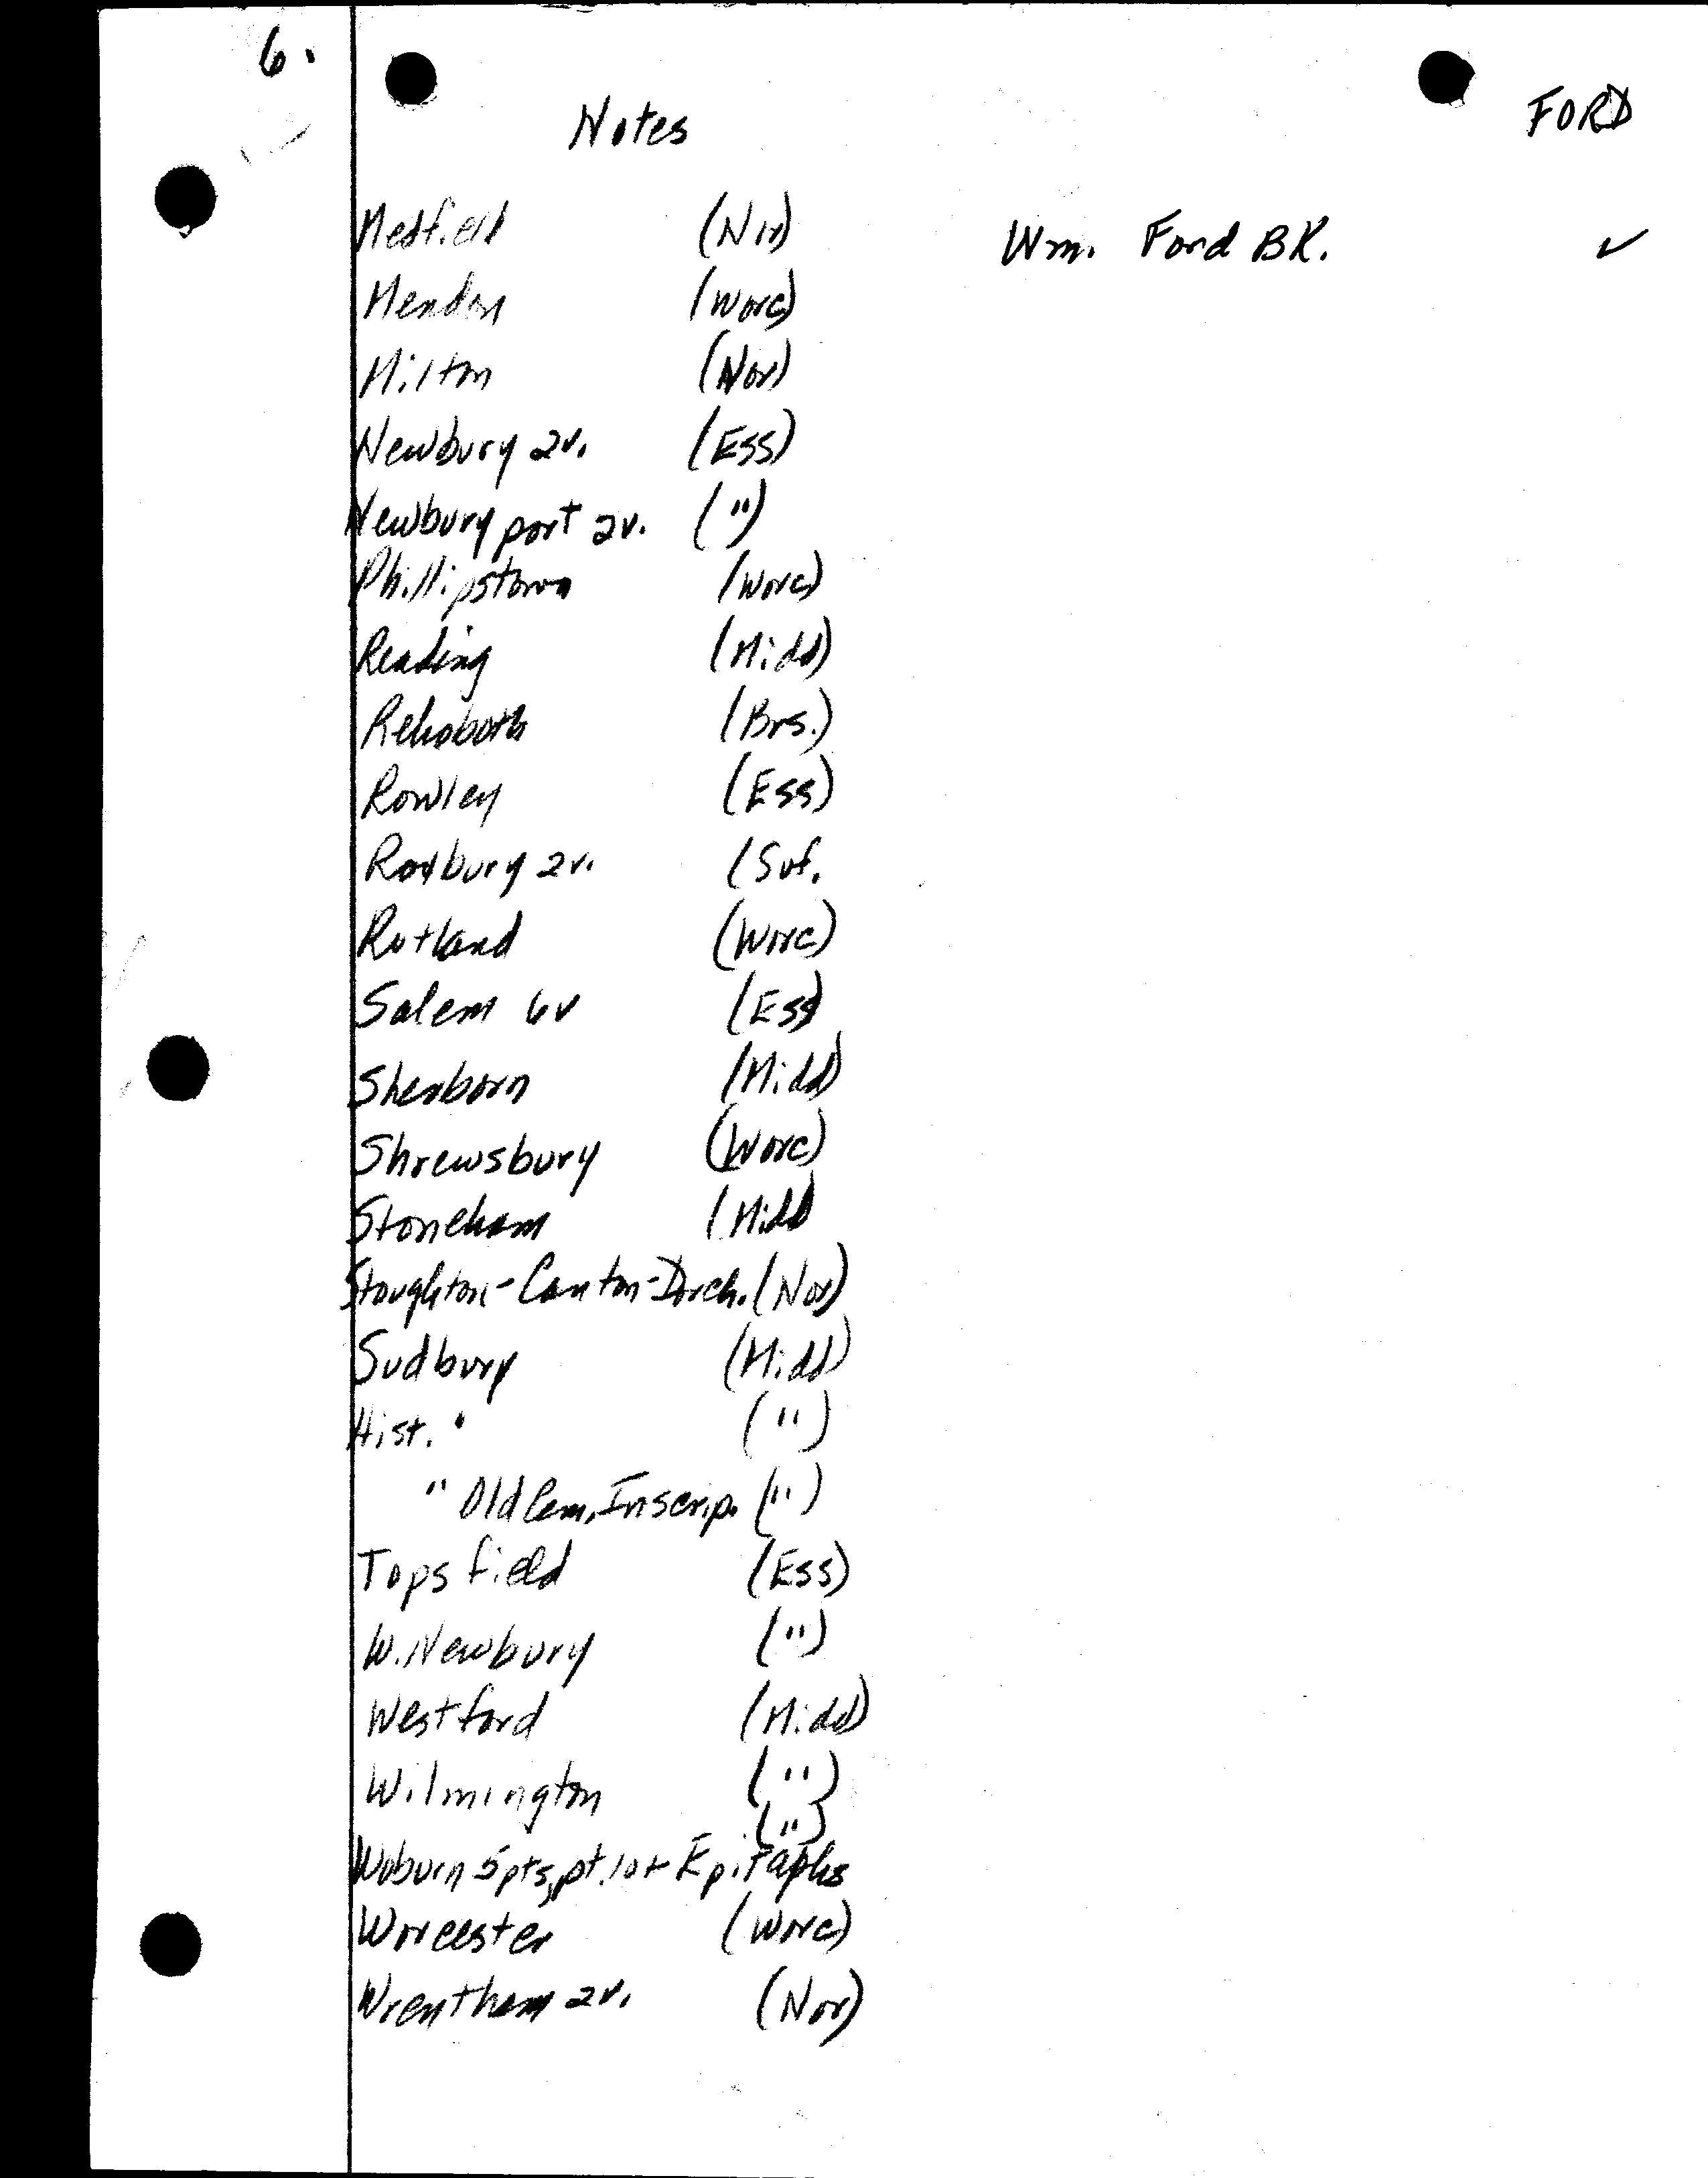 6.
Notes
FORD
Medfield (Nor) Wm. Ford BK. ✓
Mendon (Worc)
Milton (Nor)
Newbury 2v. (Ess)
Newburyport 2v. (")
Phillipston (Worc)
Reading (Midd)
Rehoboth (Brs.)
Rowley (Ess)
Roxbury 2v. (Suf.
Rutland (Worc)
Salem 6v (Ess)
Sherborn (Midd)
Shrewsbury (Worc)
Stoneham (Midd
Stoughton-Canton-Dorch. (Nor)
Sudbury (Midd)
Hist. " (")
" Old Cem. Inscrip. (")
Topsfield (Ess)
W. Newbury (")
Westford (Midd)
Wilmington (")
(")
Woburn 5 pts, pt. 10+ Epitaphs
Worcester (Worc)
Wrentham 2v. (Nor)